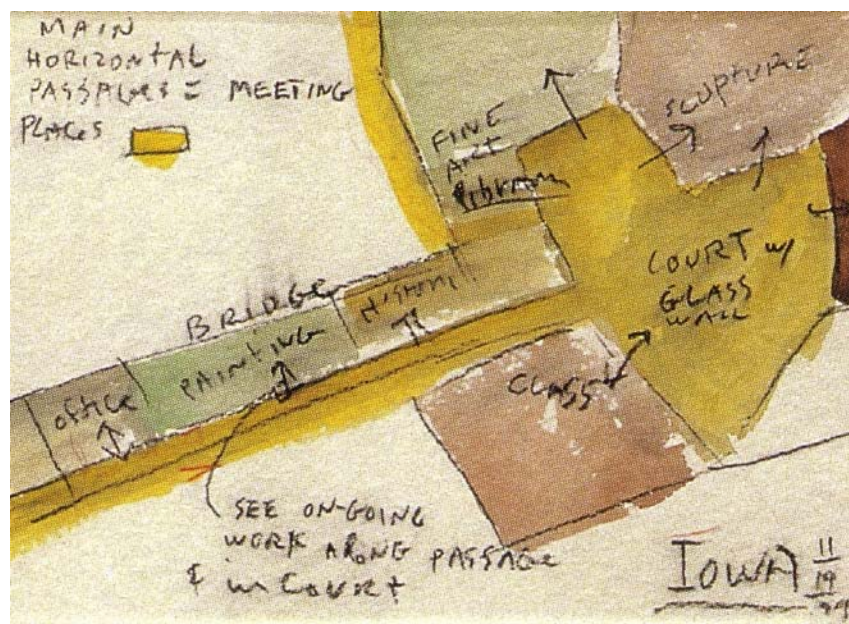 MAIN
HORIZONTAL
PASSAGES = MEETING
PLACES
FINE
ART
LIBRARY
SCUPTURE
COURT W/
GLASS
WALL
BRIDGE
HISTORY
PAINTING
OFFICE
CLASS
SEE ON-GOING
WORK ALONG PASSAGE
& IN COURT
IOWA 11
19